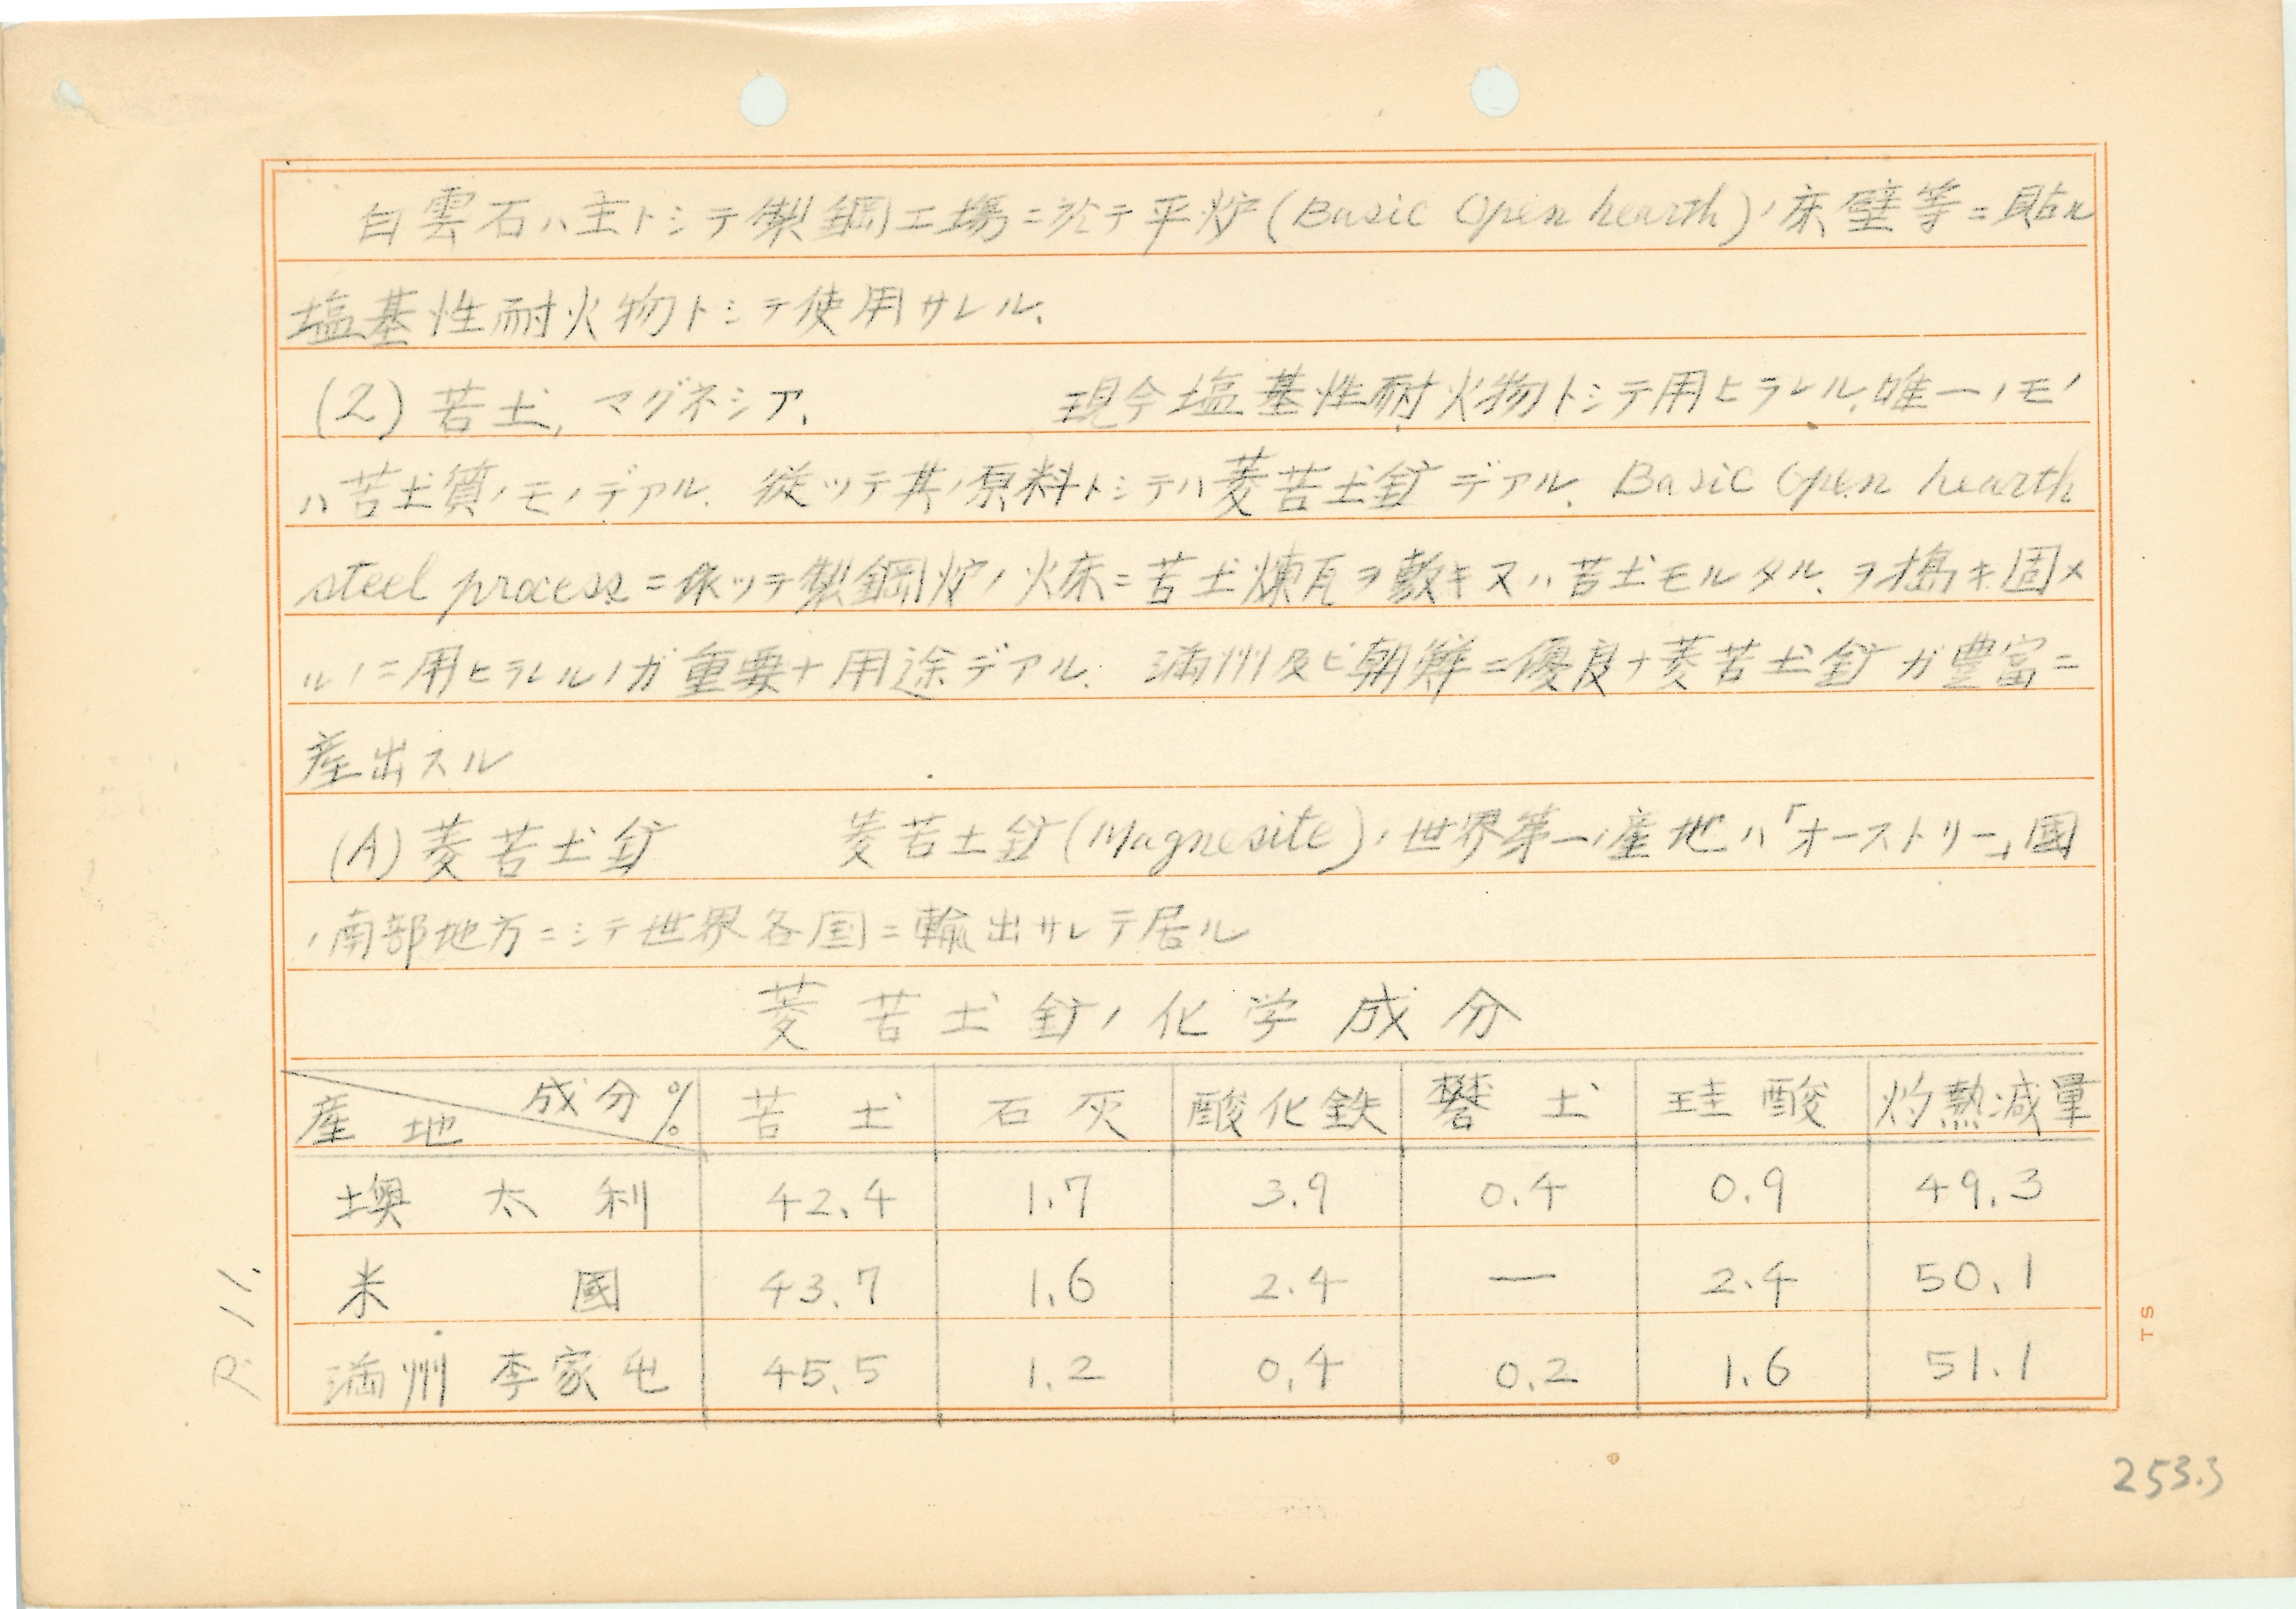 白雲石ハ主トシテ製鋼工場ニ於テ平炉(Basic Open hearth)ノ床壁等ニ貼ル
塩基性耐火物トシテ使用サレル.
(2) 苦土, マグネシア.　現今塩基性耐火物トシテ用ヒラレル.唯一ノモノ
ハ苦土質ノモノデアル. 従ッテ其ノ原料トシテハ菱苦土鉱デアル. Basic Open hearth
steel processニ依ッテ製鋼炉ノ火床ニ苦土煉瓦ヲ敷キ又ハ苦土モルタル.ヲ搗キ固メ
ルノニ用ヒラレルノガ重要ナ用途デアル. 満州及ビ朝鮮ニ優良ナ菱苦土鉱ガ豊富ニ
産出スル
(A) 菱苦土鉱　菱苦土鉱(Magnesite)ノ世界第一ノ産地ハ「オーストリー」國
ノ南部地方ニシテ世界各国ニ輸出サレテ居ル
菱苦土鉱ノ化学成分
産地 成分% 苦土 石灰 酸化鉄 礬土 珪酸 灼熱減量
墺太利 42.4 1.7 3.9 0.4 0.9 49.3
米國 43.7 1.6 2.4 — 2.4 50.1
満州 李家屯 45.5 1.2 0.4 0.2 1.6 51.1
P. 11.
TS
253.3